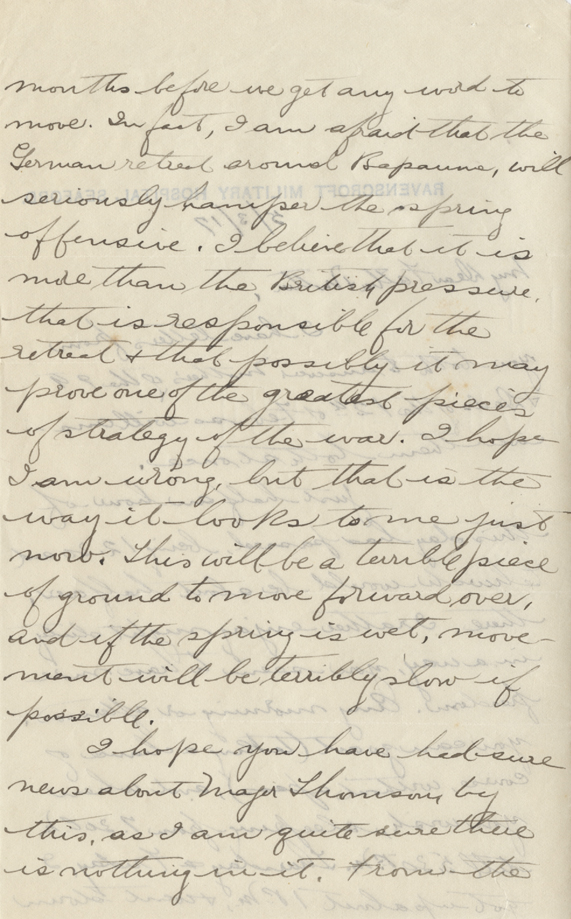 months before we get any word to
move. In fact, I am afraid that the
German retreat around Bapaume, will
seriously hamper the spring
offensive. I believe that it is
more than the British pressure,
that is responsible for the
retreat & that possibly it may
prove one of the greatest pieces
of strategy of the war. I hope
I am wrong, but that is the
way it looks to me just
now. This will be a terrible piece
of ground to move forward over,
and if the spring is wet, move-
ment will be terribly slow if
possible.
I hope you have had sure
news about Major Thomson, by
this, as I am quite sure there
is nothing in it. From the